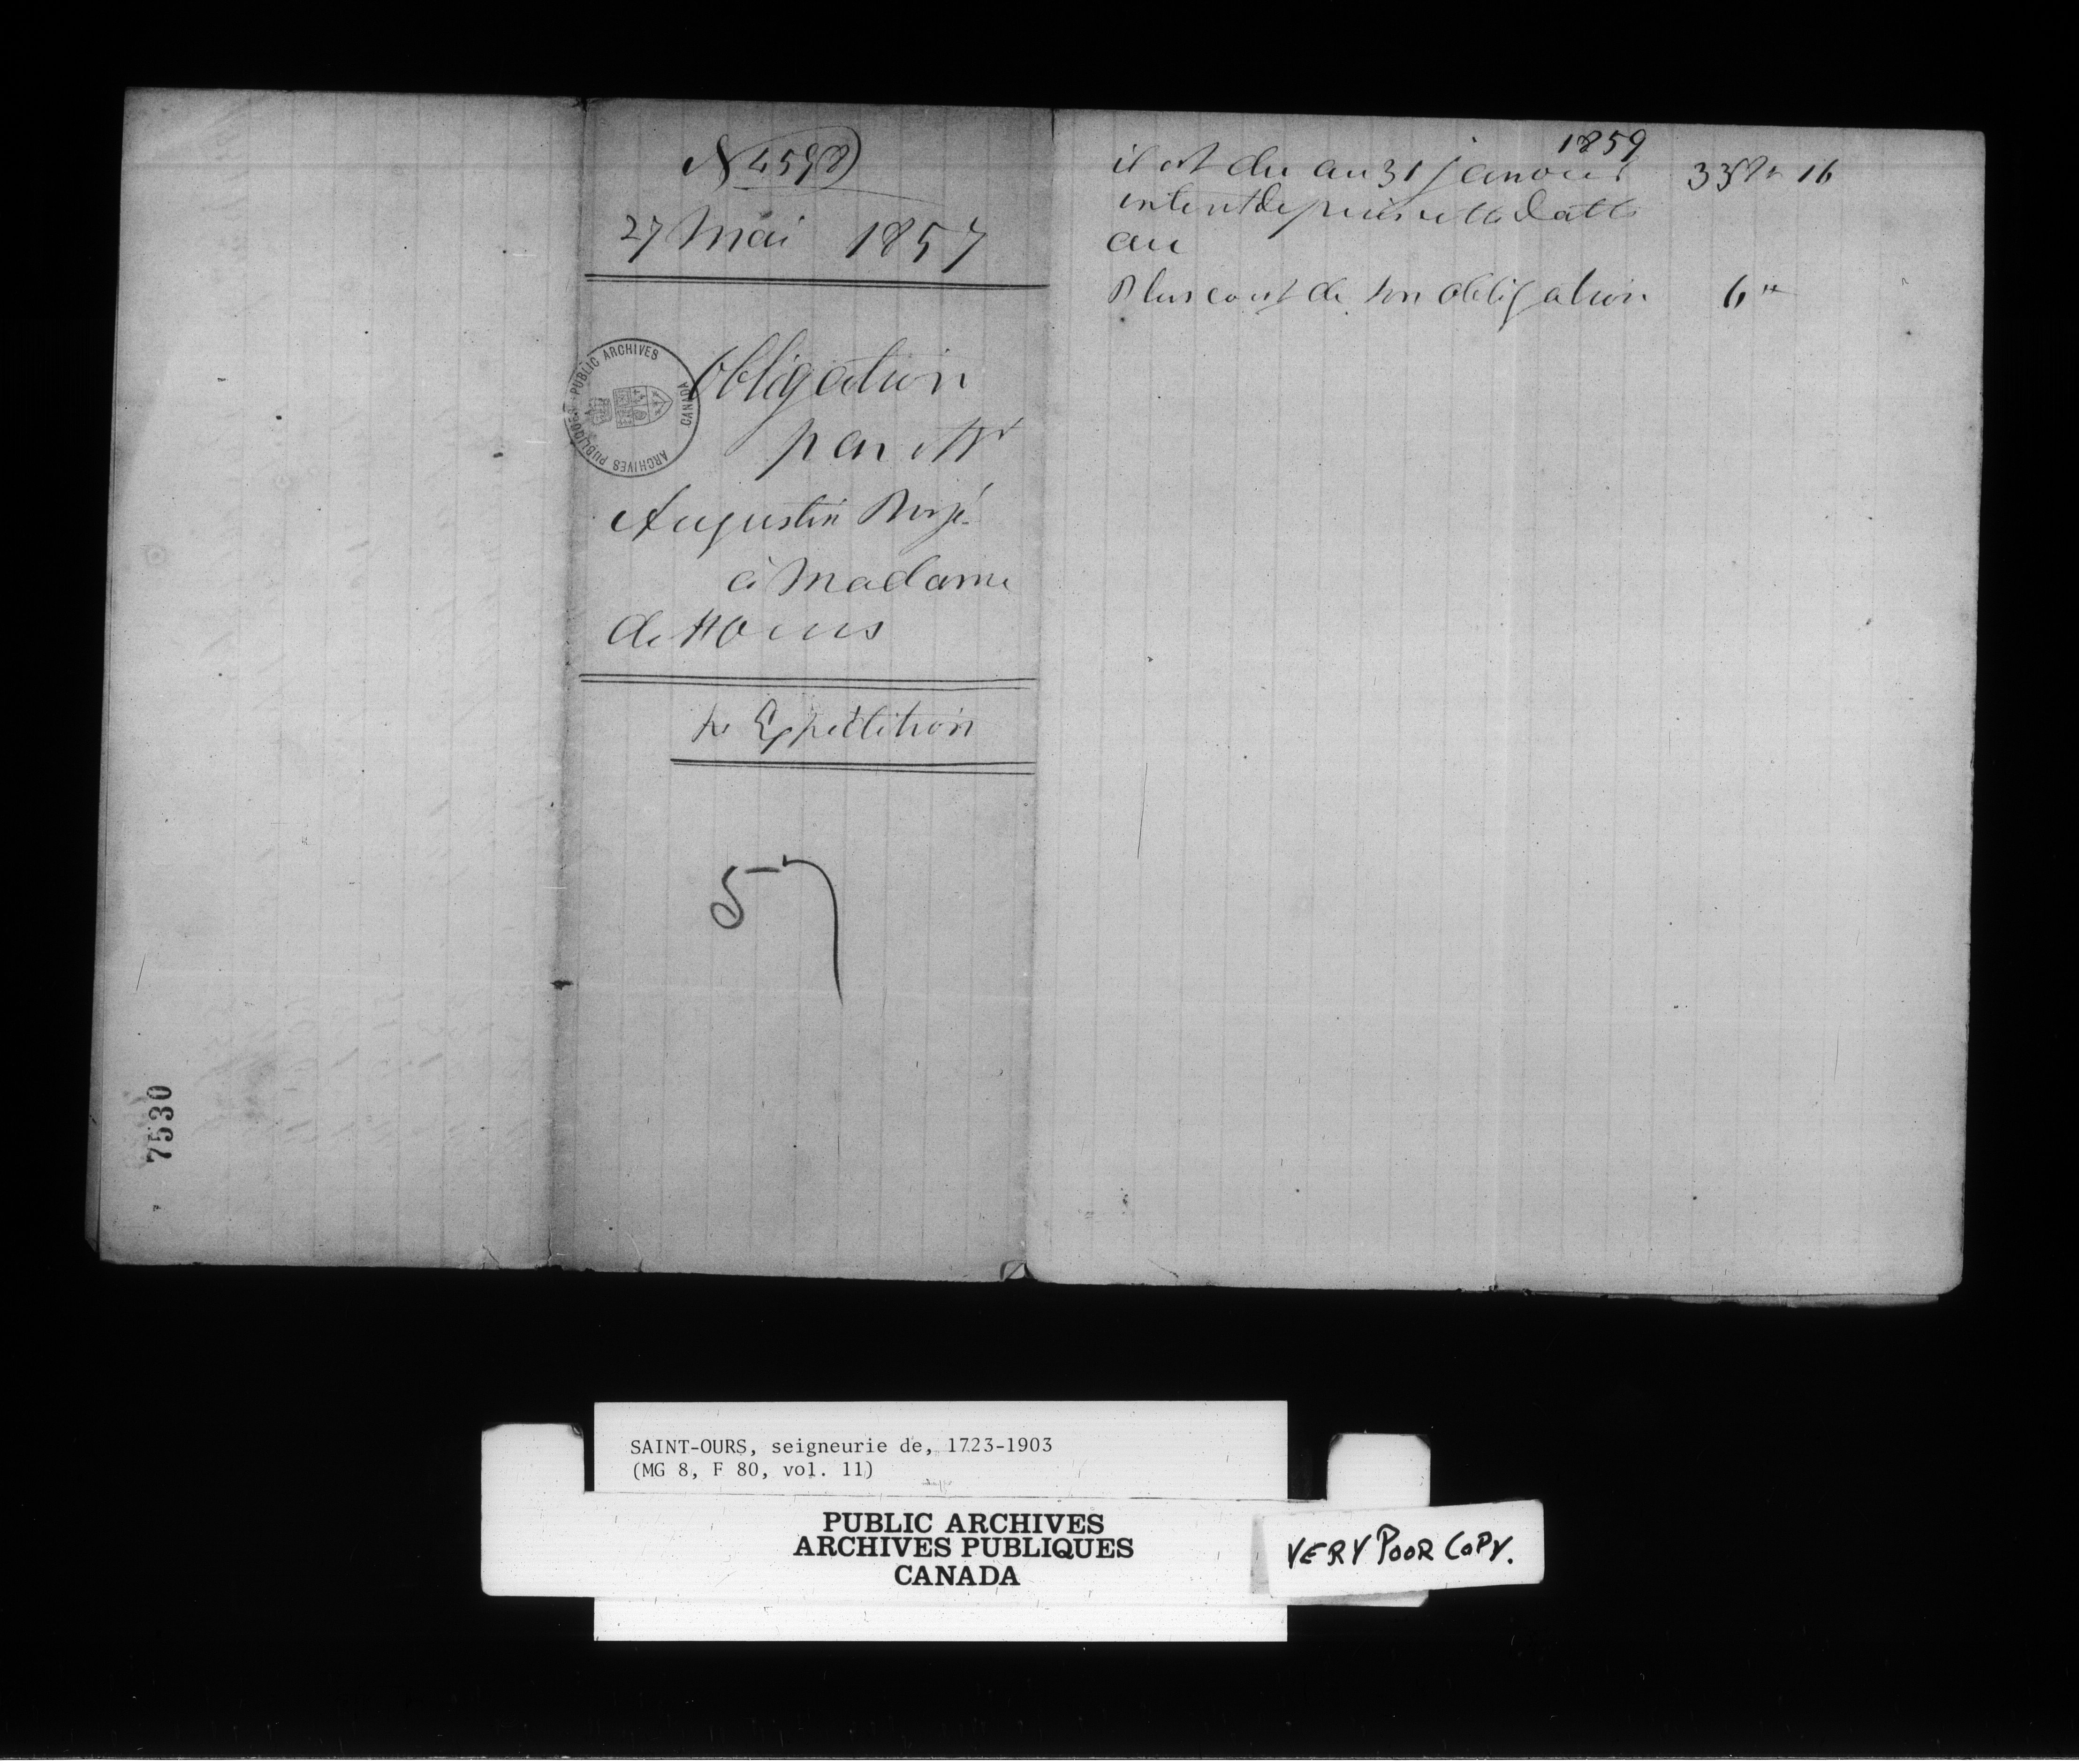 N 4598
27 Mai 1857
PUBLIC ARCHIVES CANADA
ARCHIVES PUBLIQUES
Obligation
par Mr
Augustin
à Madame
de St Ours
1re Expédition
57
1859
il est du au 31 janvier 16
interet depuis cette datte
au
Plus cout de son obligation 6"
7530
SAINT-OURS, seigneurie de, 1723-1903
(MG 8, F 80, vol. 11)
PUBLIC ARCHIVES
ARCHIVES PUBLIQUES
CANADA
VERY POOR COPY.